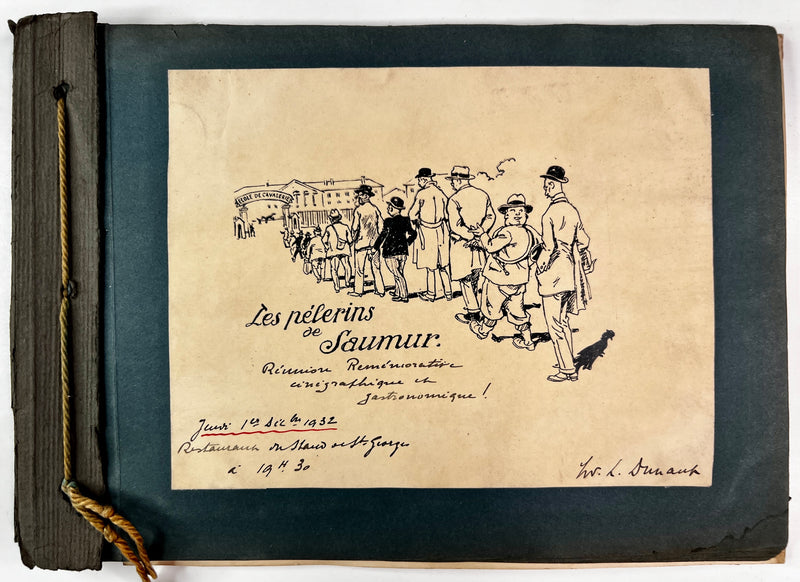 ECOLE DE CAVALERIE
Les pélerins
de
Saumur.
Réunion Remémorative
cinégraphique et
gastronomique !
Jeudi 1er Déc bre 1932
Restaurant du Stand de St Georges
à 19 H. 30
L. Dunant